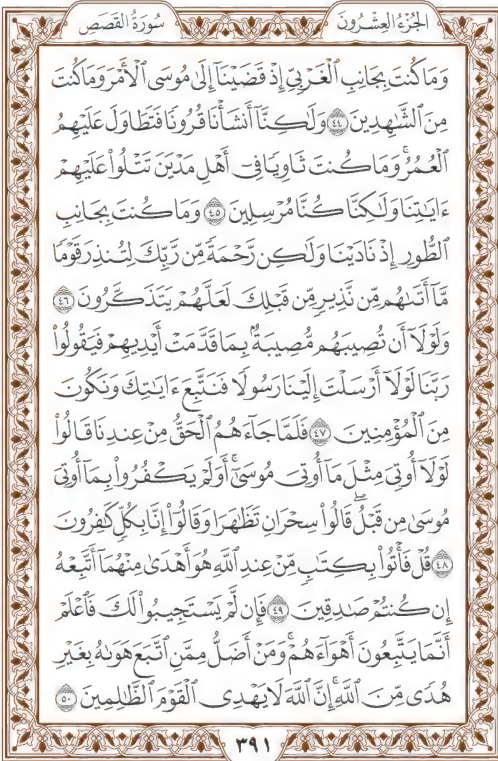 الجُزْءُ العِشْرُونَ
سُورَةُ القَصَصِ
وَمَا كُنتَ بِجَانِبِ ٱلْغَرْبِيِّ إِذْ قَضَيْنَآ إِلَىٰ مُوسَى ٱلْأَمْرَ وَمَا كُنتَ
مِنَ ٱلشَّٰهِدِينَ ﴿٤٤﴾ وَلَٰكِنَّآ أَنشَأْنَا قُرُونًا فَتَطَاوَلَ عَلَيْهِمُ
ٱلْعُمُرُ ۚ وَمَا كُنتَ ثَاوِيًا فِىٓ أَهْلِ مَدْيَنَ تَتْلُوا۟ عَلَيْهِمْ
ءَايَٰتِنَا وَلَٰكِنَّا كُنَّا مُرْسِلِينَ ﴿٤٥﴾ وَمَا كُنتَ بِجَانِبِ
ٱلطُّورِ إِذْ نَادَيْنَا وَلَٰكِن رَّحْمَةً مِّن رَّبِّكَ لِتُنذِرَ قَوْمًا
مَّآ أَتَىٰهُم مِّن نَّذِيرٍ مِّن قَبْلِكَ لَعَلَّهُمْ يَتَذَكَّرُونَ ﴿٤٦﴾
وَلَوْلَآ أَن تُصِيبَهُم مُّصِيبَةٌۢ بِمَا قَدَّمَتْ أَيْدِيهِمْ فَيَقُولُوا۟
رَبَّنَا لَوْلَآ أَرْسَلْتَ إِلَيْنَا رَسُولًا فَنَتَّبِعَ ءَايَٰتِكَ وَنَكُونَ
مِنَ ٱلْمُؤْمِنِينَ ﴿٤٧﴾ فَلَمَّا جَآءَهُمُ ٱلْحَقُّ مِنْ عِندِنَا قَالُوا۟
لَوْلَآ أُوتِىَ مِثْلَ مَآ أُوتِىَ مُوسَىٰٓ ۚ أَوَلَمْ يَكْفُرُوا۟ بِمَآ أُوتِىَ
مُوسَىٰ مِن قَبْلُ ۖ قَالُوا۟ سِحْرَانِ تَظَٰهَرَا وَقَالُوٓا۟ إِنَّا بِكُلٍّ كَٰفِرُونَ
﴿٤٨﴾ قُلْ فَأْتُوا۟ بِكِتَٰبٍ مِّنْ عِندِ ٱللَّهِ هُوَ أَهْدَىٰ مِنْهُمَآ أَتَّبِعْهُ
إِن كُنتُمْ صَٰدِقِينَ ﴿٤٩﴾ فَإِن لَّمْ يَسْتَجِيبُوا۟ لَكَ فَٱعْلَمْ
أَنَّمَا يَتَّبِعُونَ أَهْوَآءَهُمْ ۚ وَمَنْ أَضَلُّ مِمَّنِ ٱتَّبَعَ هَوَىٰهُ بِغَيْرِ
هُدًى مِّنَ ٱللَّهِ ۚ إِنَّ ٱللَّهَ لَا يَهْدِى ٱلْقَوْمَ ٱلظَّٰلِمِينَ ﴿٥٠﴾
٣٩١